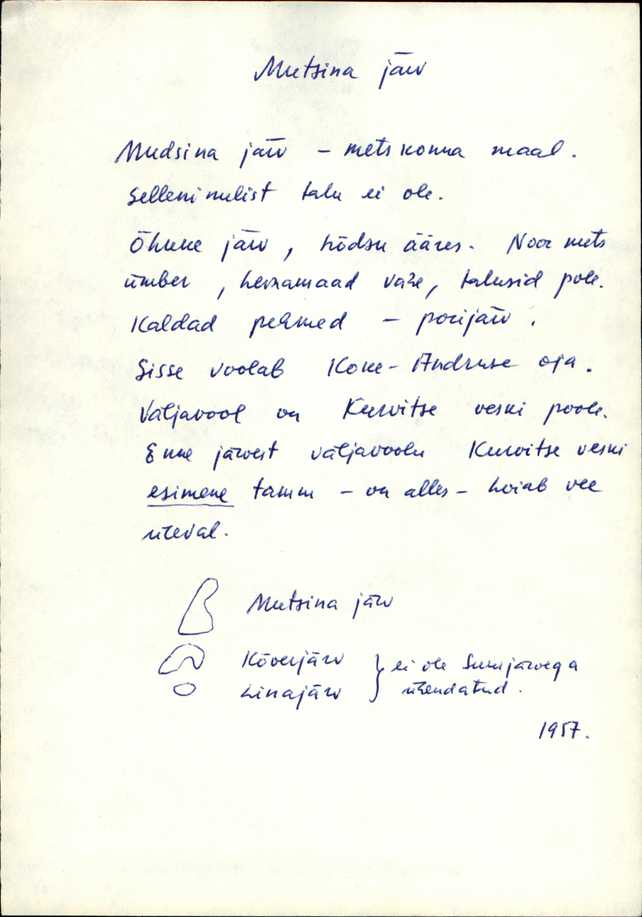 Mutsina järv
Mudsina järv – metskonna maal.
Sellenimelist talu ei ole.
Õhuke järv, hõdsu ääres. Noor mets
ümber, heinamaad vähe, talusid pole.
Kaldad pehmed – porijärv.
Sisse voolab Kone-Andruse oja.
Väljavool on Kurvitse veski poole.
Enne järvest väljavoolu Kurvitse veski
esimene tamm – on alles – hoiab vee
üleval.
Mutsina järv
Kõverjärv } ei ole Suurjärvega
Linajärv } ühendatud.
1957.